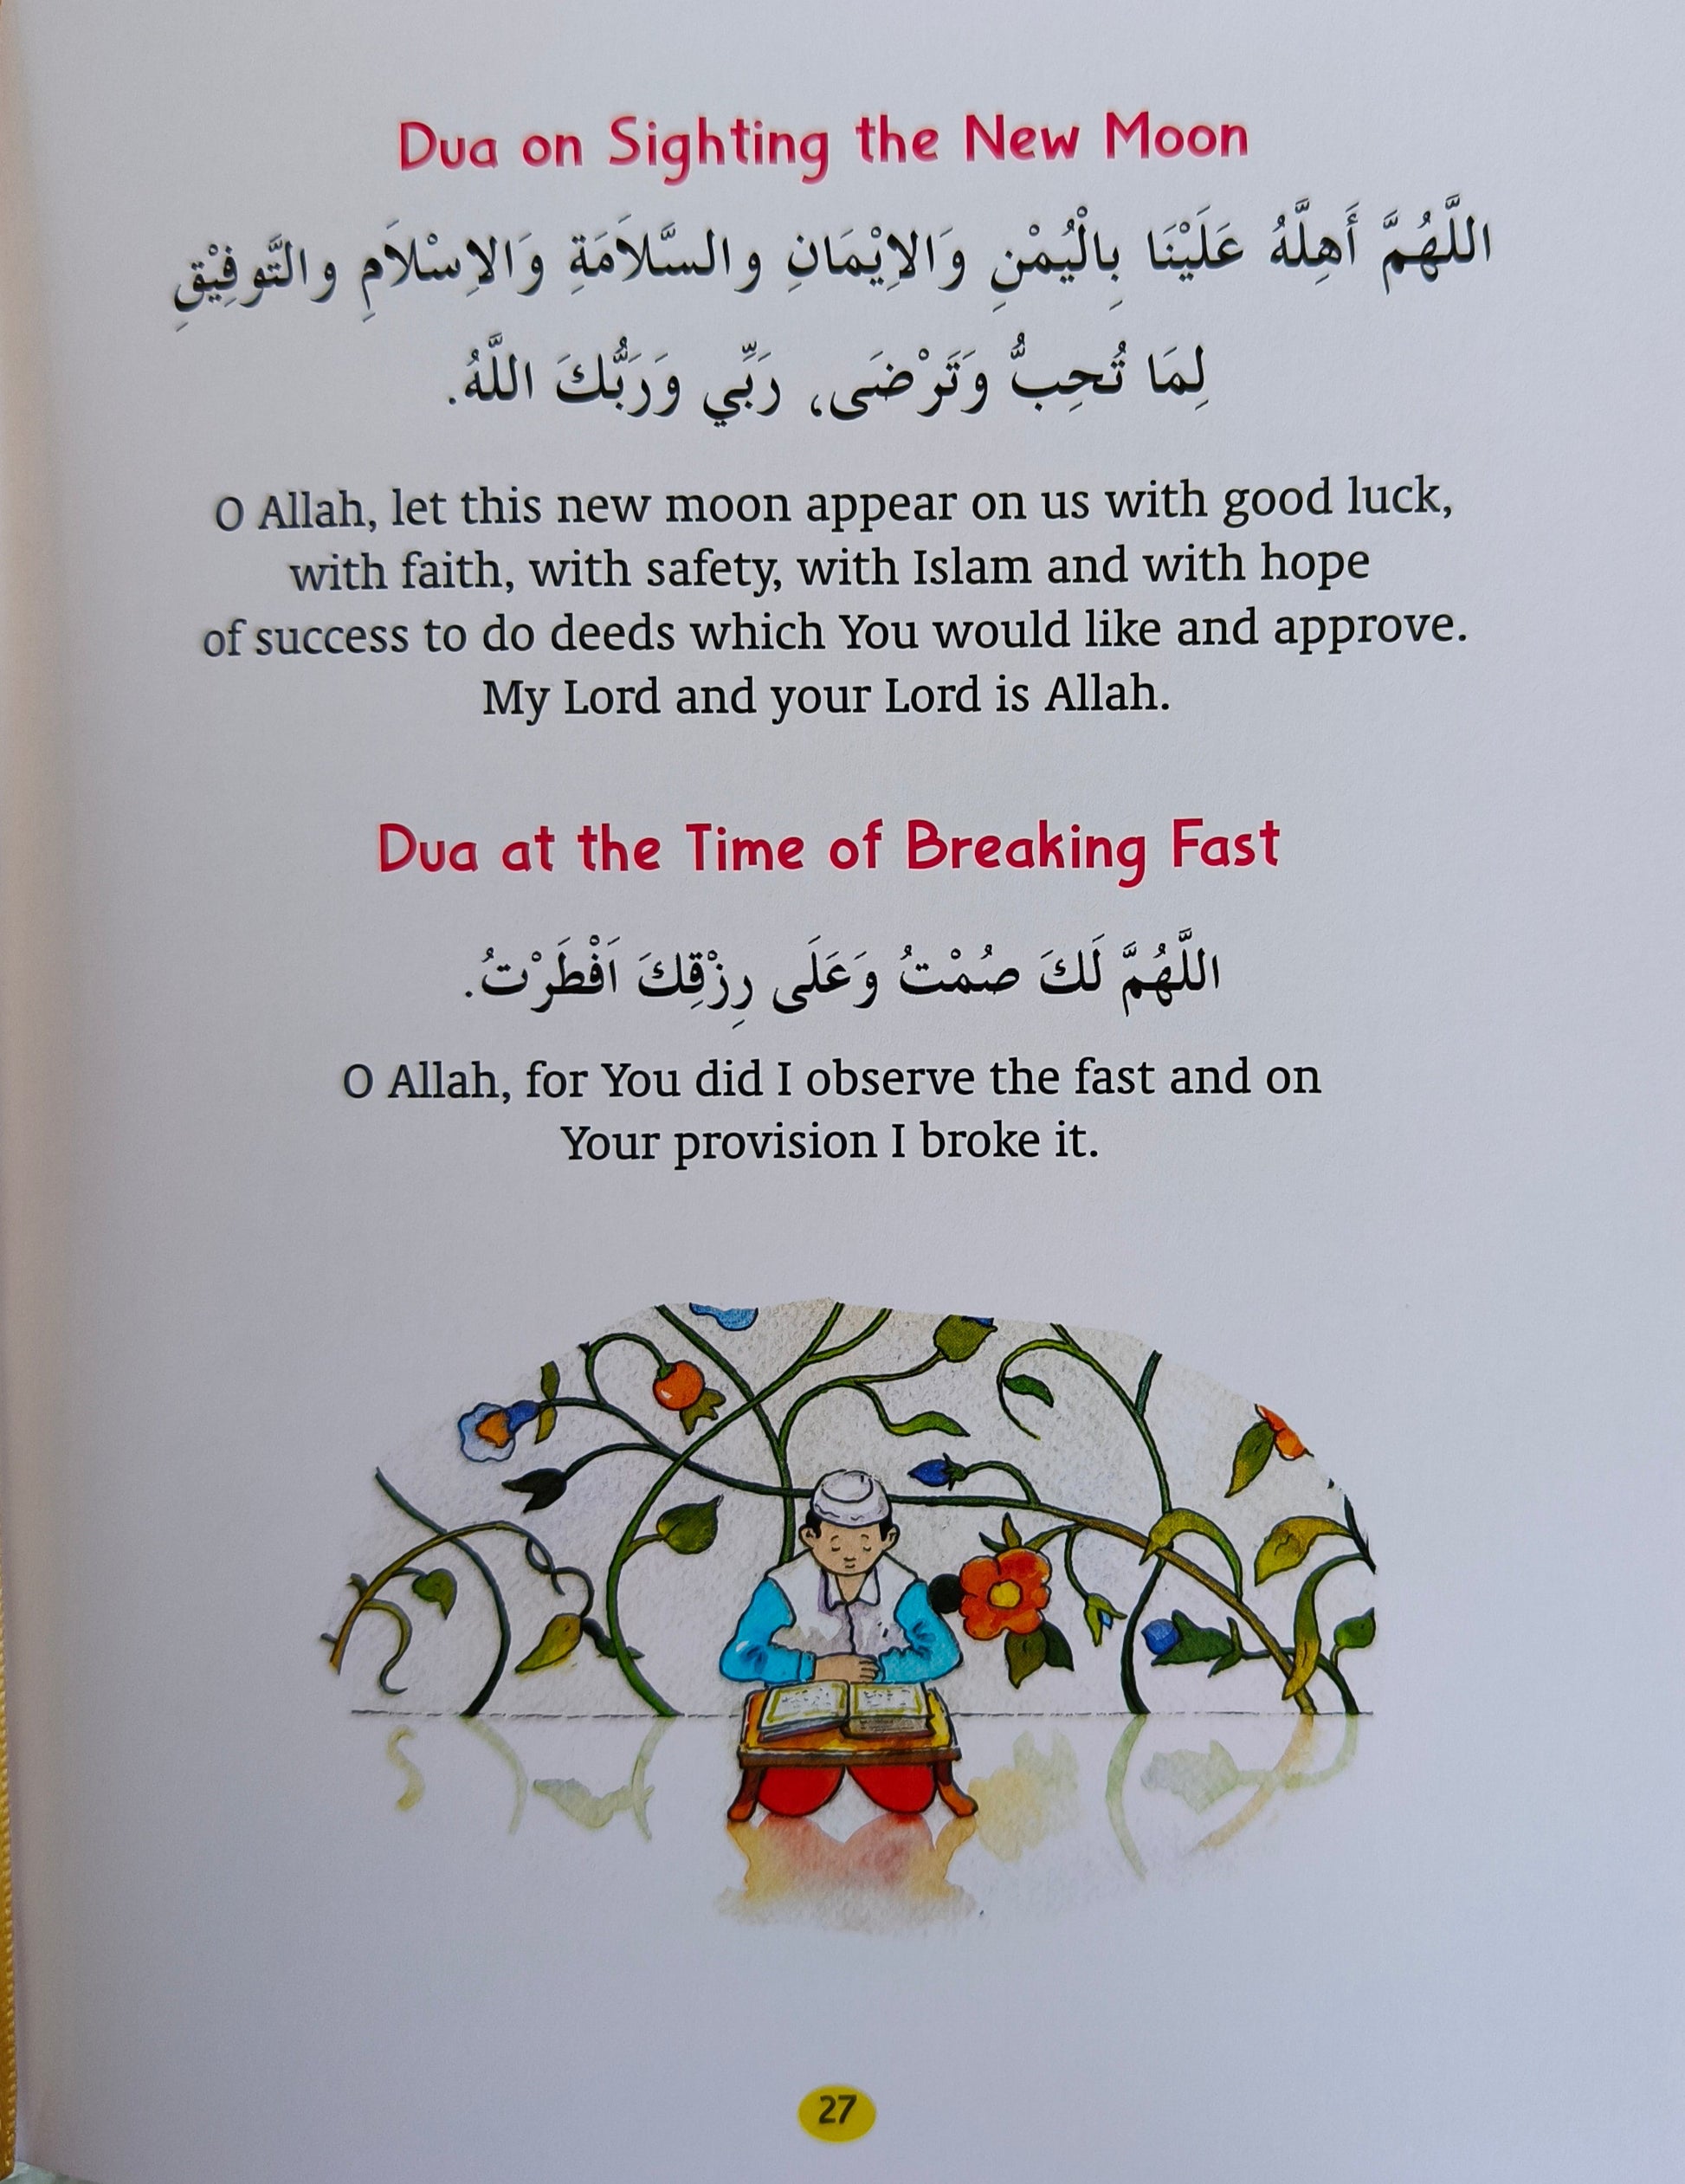 Dua on Sighting the New Moon
اللَّهُمَّ أَهِلَّهُ عَلَيْنَا بِالْيُمْنِ وَالاِيْمَانِ والسَّلاَمَةِ وَالاِسْلاَمِ والتَّوفِيْقِ
لِمَا تُحِبُّ وَتَرْضَى، رَبِّي وَرَبُّكَ اللَّهُ.
O Allah, let this new moon appear on us with good luck,
with faith, with safety, with Islam and with hope
of success to do deeds which You would like and approve.
My Lord and your Lord is Allah.
Dua at the Time of Breaking Fast
اللَّهُمَّ لَكَ صُمْتُ وَعَلَى رِزْقِكَ اَفْطَرْتُ.
O Allah, for You did I observe the fast and on
Your provision I broke it.
27